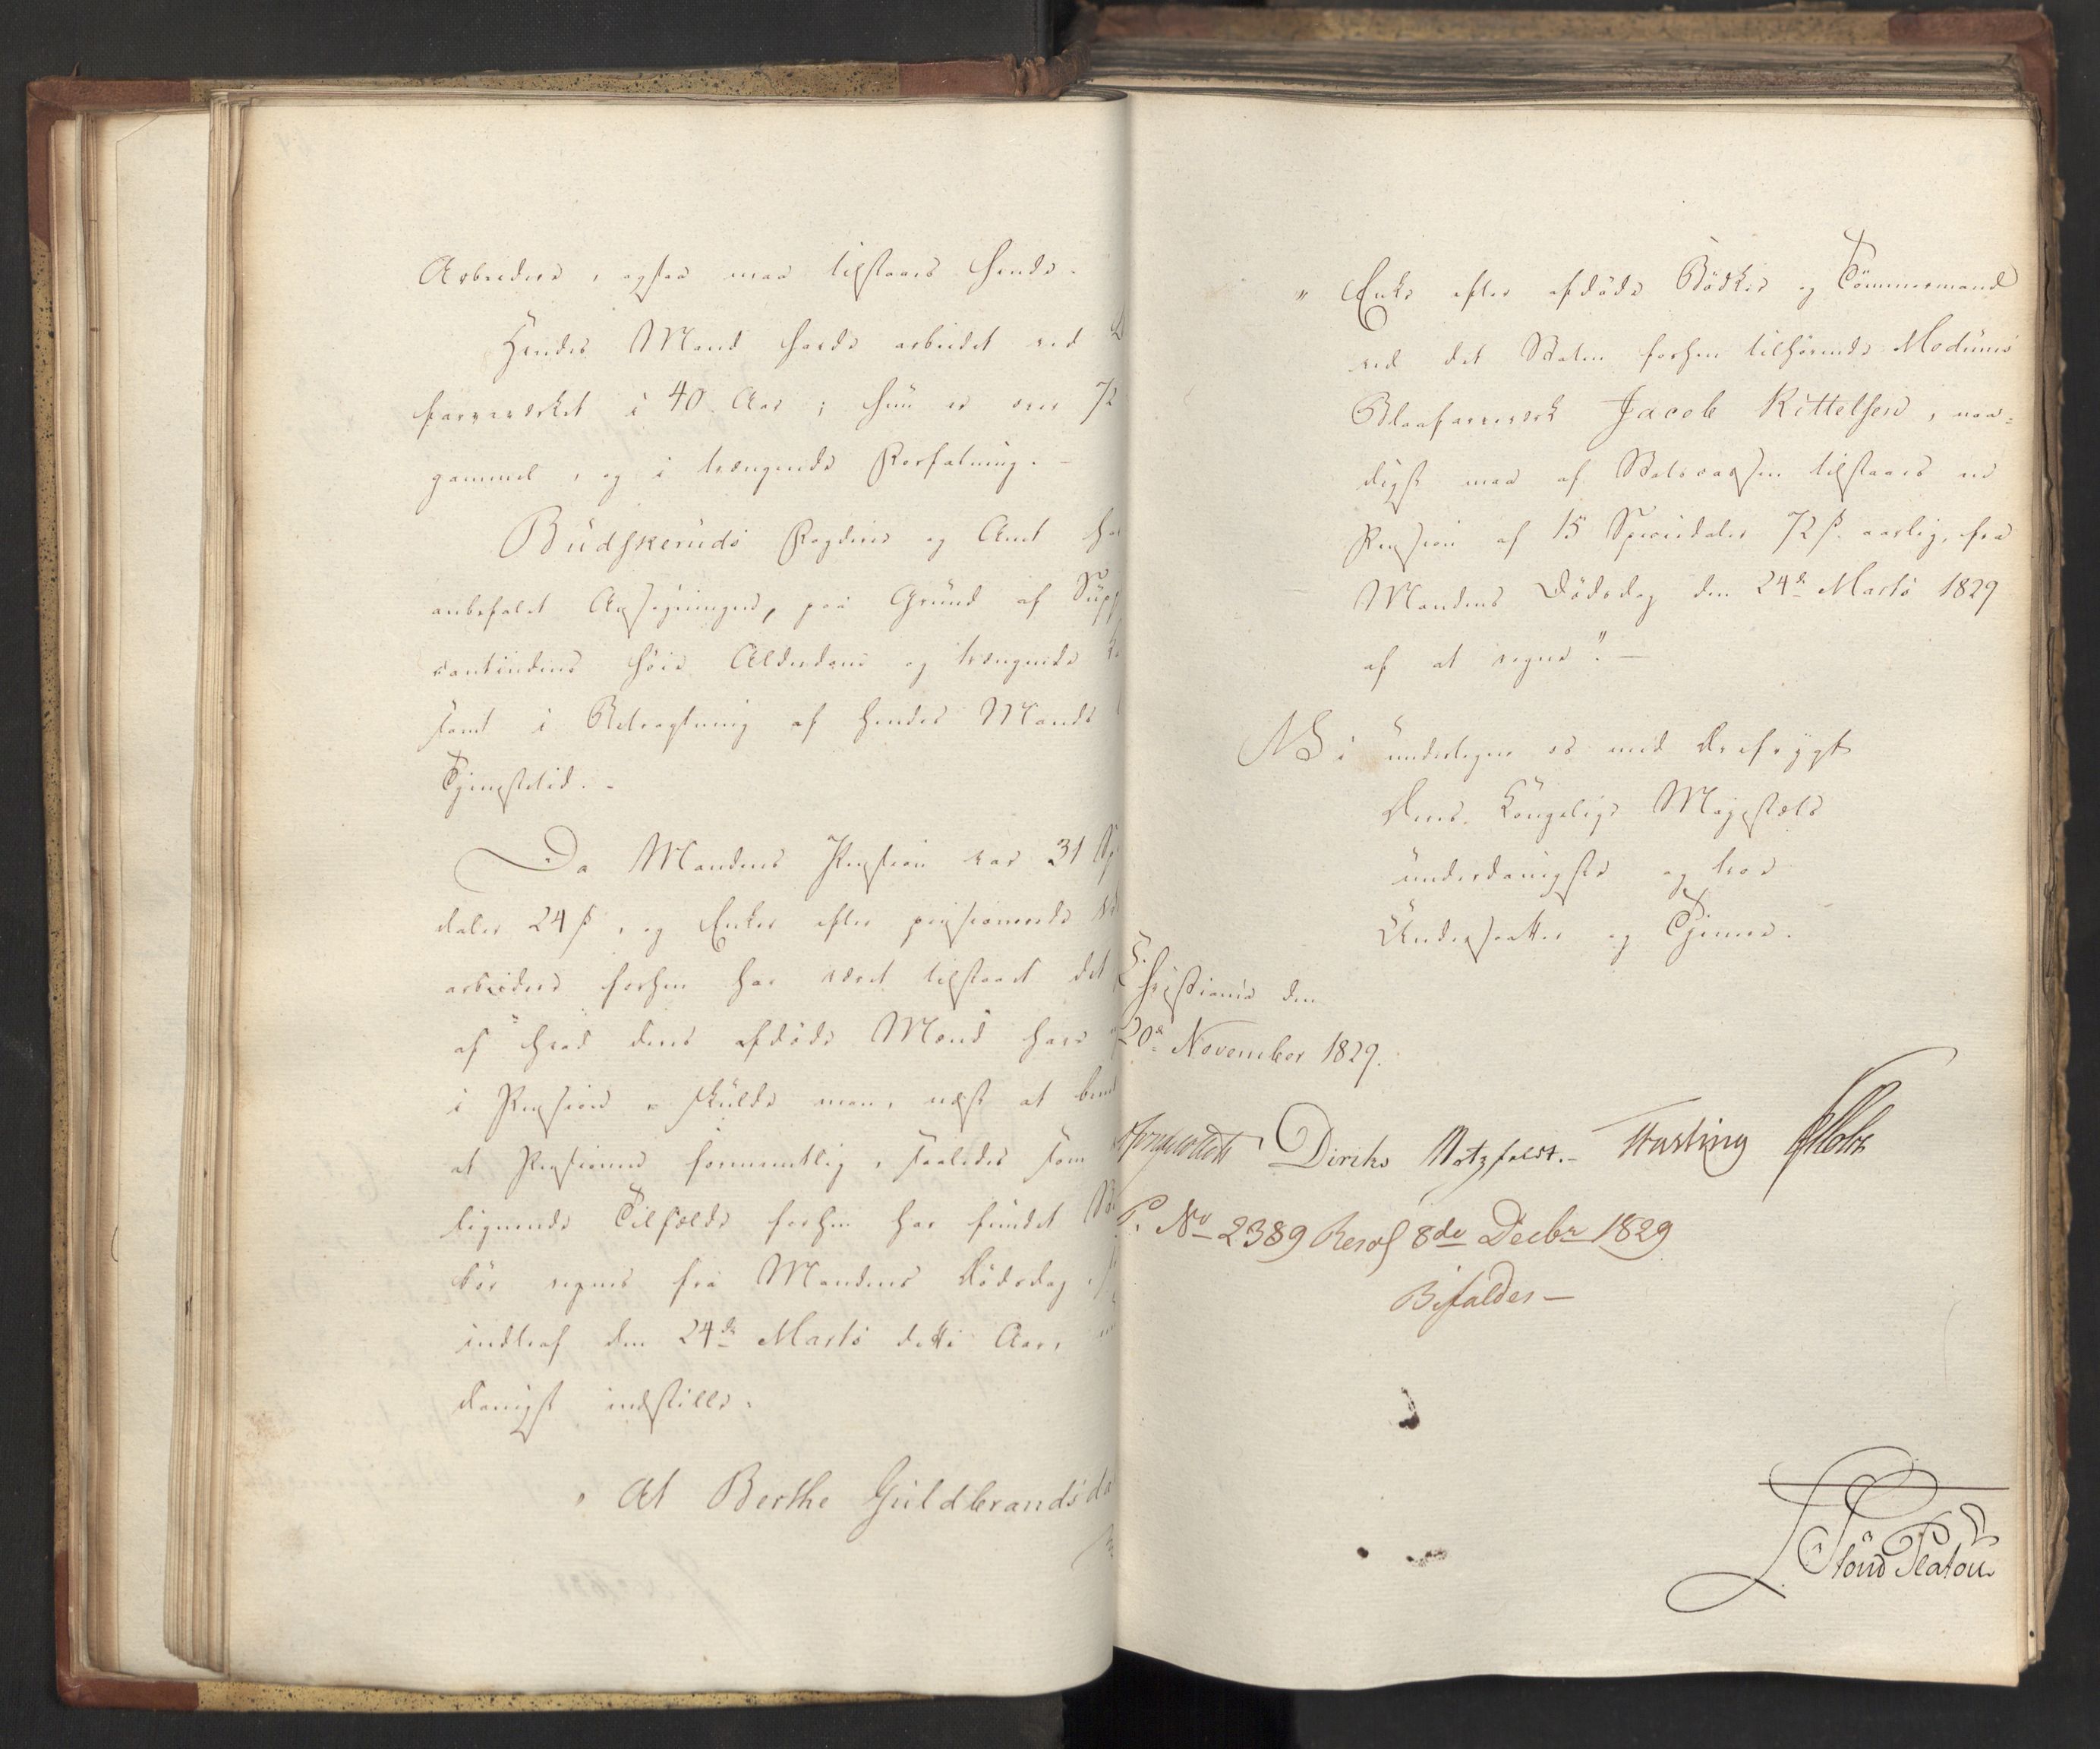 Arbeidere, ogsaa maa tilstaaes hende.
Hendes Mand havde arbeidet ved
farveværket i 40 Aar; hun er over 72
gammel, og i trængende Forfatning.
Budskeruds Fogderie og Amt har
anbefalet Ansøgningen, paa Grund af Supp
cantindens høie Alderdom og trængende
samt i Betragtning af hendes Mands
Tjenestetid.
Da Mandens Pension var 31 Sp
daler 24 ß, og Enker efter pensionerede
arbeidere forhen har været tilstaaet det
af hvad deres afdøde Mænd have
i Pension, skulde man, næst at
at Pensionen formentlig, saaledes som
lignende Tilfælde forhen har fundet
bør regnes fra Mandens Dødsdag,
indtraf den 24de Marts dette Aar,
danigst indstille:
" At Berthe Guldbrandsda
" Enke efter afdøde Bødker og Tømmermand
ved det Staten forhen tilhørende Modums
Blaafarveværk Jacob Kittelsen, naa-
digst maa af Statscassen tilstaaes en
Pension af 15 Speciedaler 72 ß. aarlig, fra
Mandens Dødsdag den 24de Marts 1829
af at regne".
Vi undertegne os med Ærefrygt
Deres Kongelige Majestæts
underdanigste og troe
Undersaatter og Tjenere.
Christiania den
20de November 1829.
Diriks Motzfeldt. Fasting
P. No 2389 Resol 8de Decbr 1829
Bifaldes
Stoud Platou